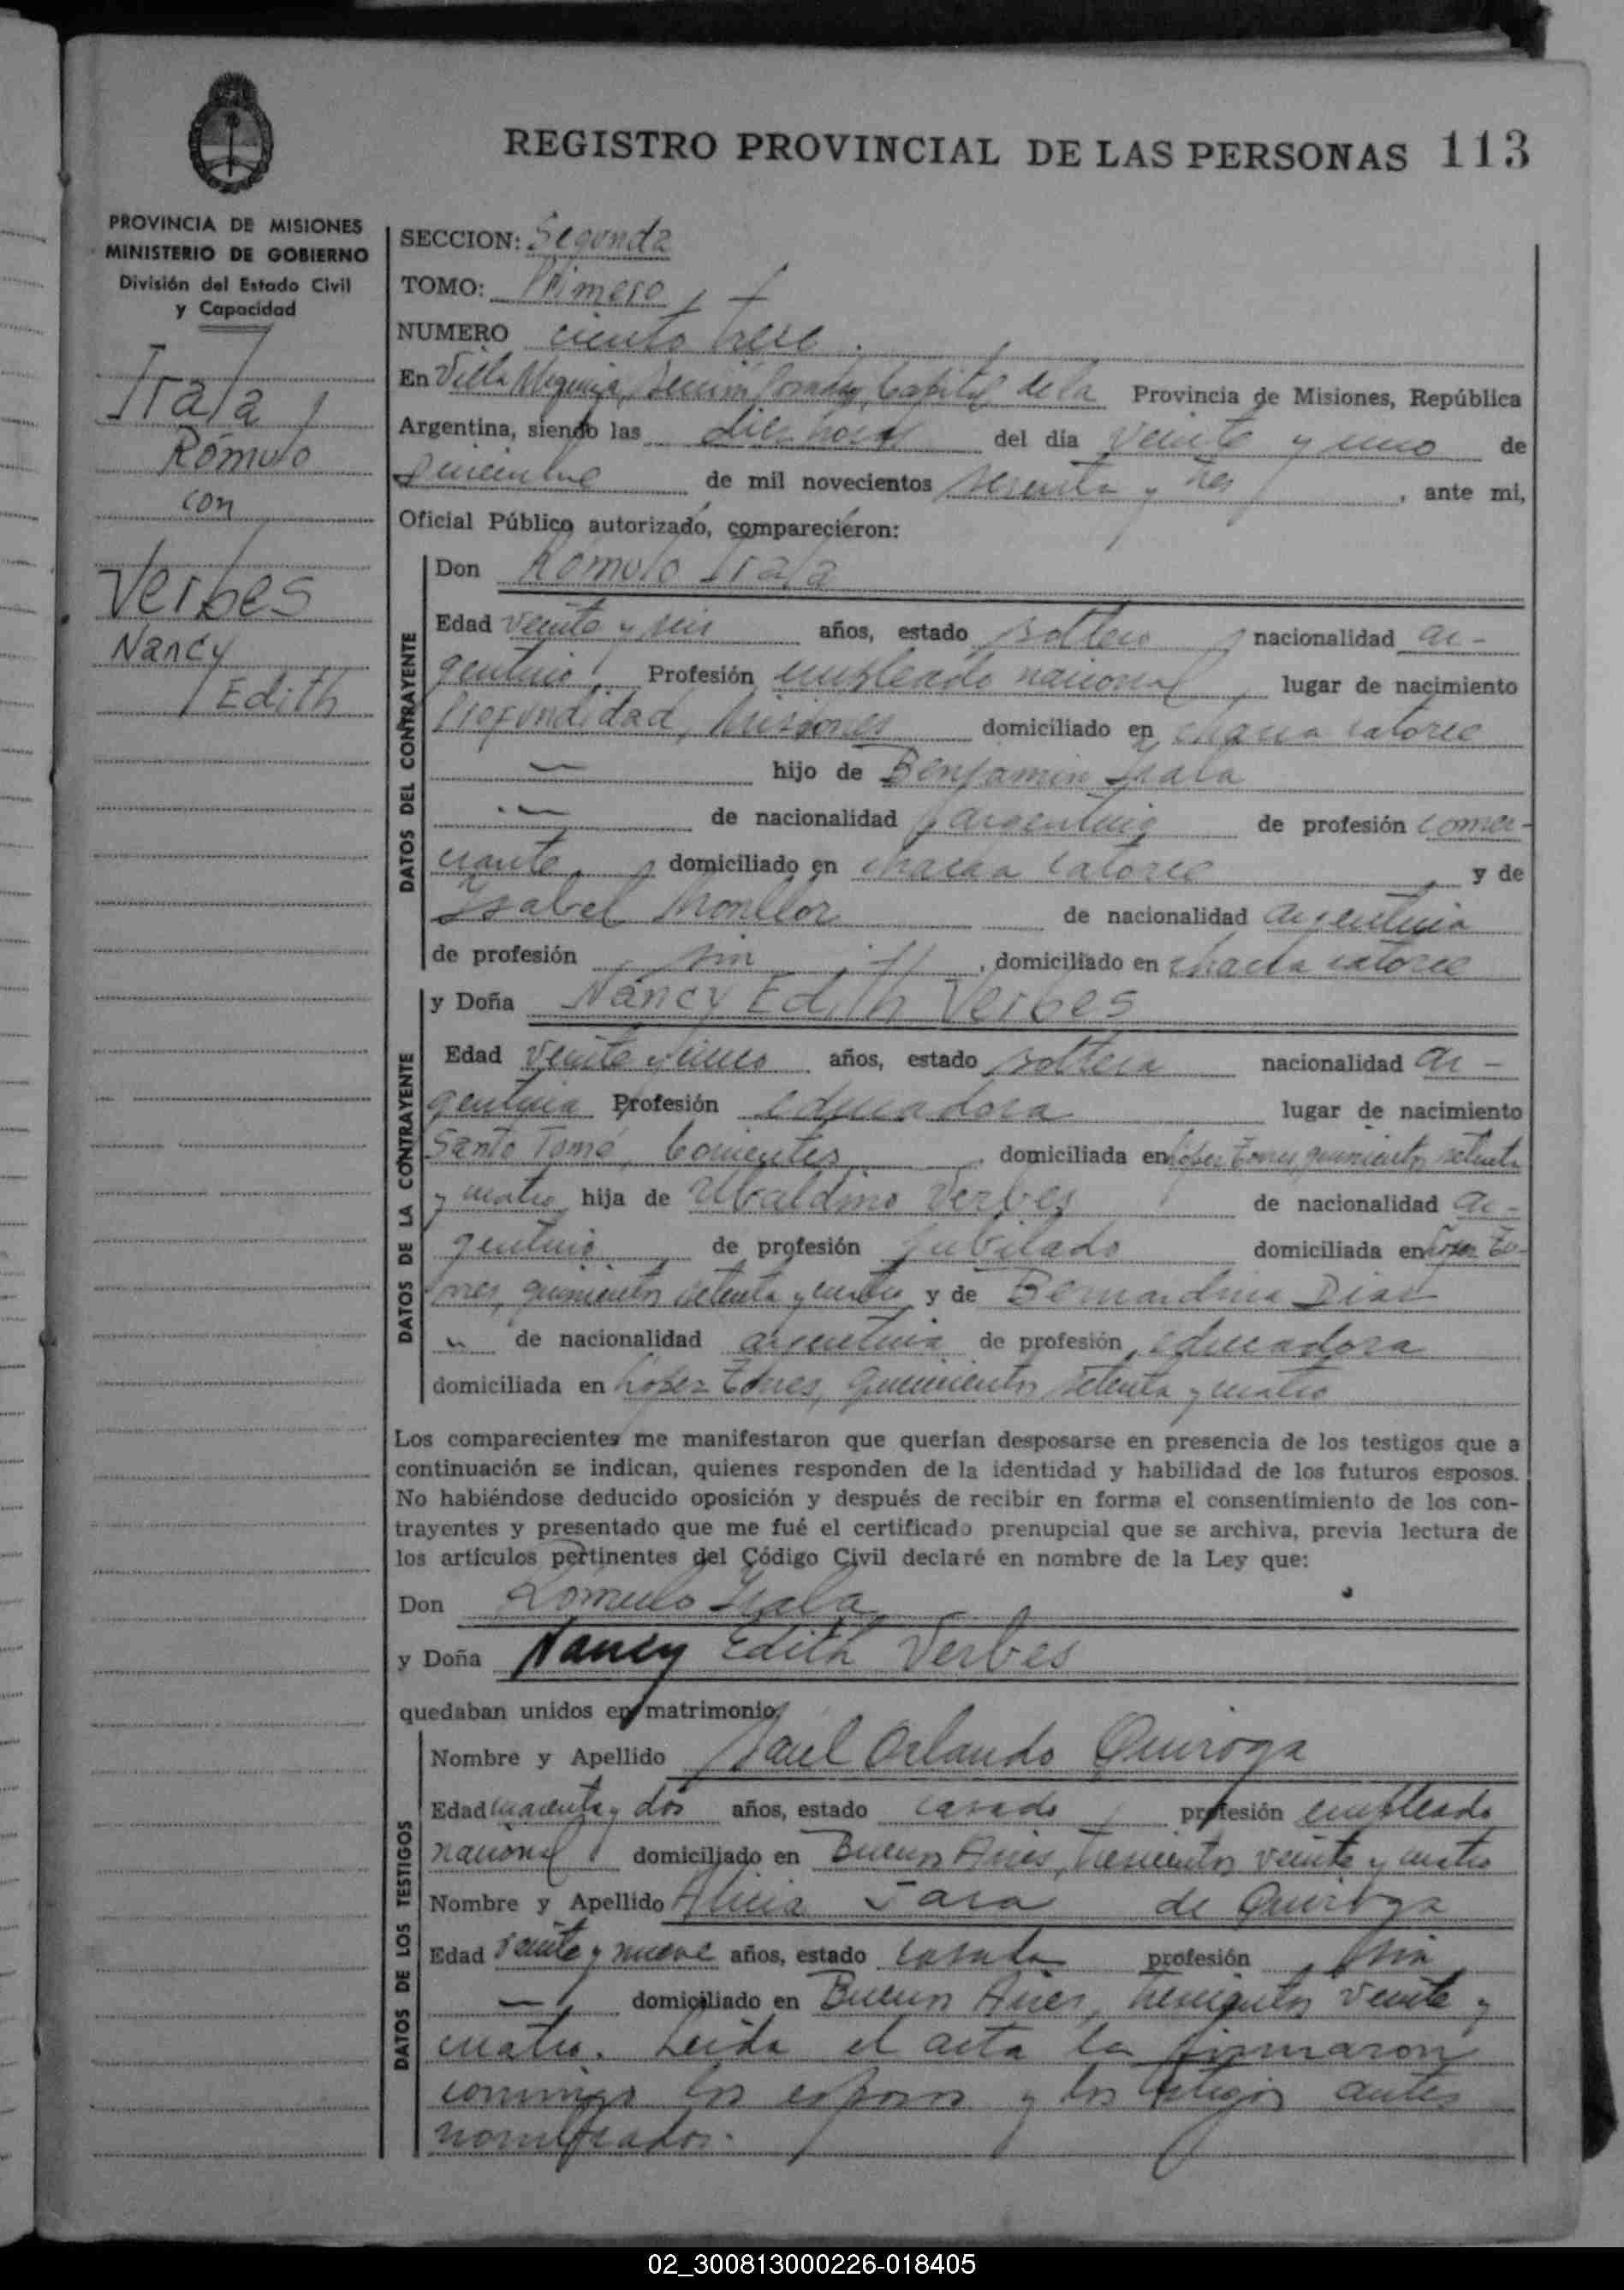 REGISTRO PROVINCIAL DE LAS PERSONAS 113
PROVINCIA DE MISIONES
MINISTERIO DE GOBIERNO
División del Estado Civil
y Capacidad
Irala
Rómulo
con
Verbes
Nancy
Edith
SECCION: Segunda
TOMO: Primero
NUMERO ciento trece
En Villa Urquiza, Sección Posadas, Capital de la Provincia de Misiones, República
Argentina, siendo las diez horas del día veinte y uno de
Diciembre de mil novecientos sesenta y tres, ante mi,
Oficial Público autorizado, comparecieron:
DATOS DEL CONTRAYENTE
Don Rómulo Irala
Edad veinte y seis años, estado soltero nacionalidad ar-
gentino Profesión empleado nacional, lugar de nacimiento
Profundidad, Misiones domiciliado en chacra catorce
hijo de Benjamin Irala
de nacionalidad argentino de profesión comer-
ciante, domiciliado en chacra catorce y de
Isabel Monllor de nacionalidad argentina
de profesión sin, domiciliado en chacra catorce
DATOS DE LA CONTRAYENTE
y Doña Nancy Edith Verbes
Edad veinte y cinco años, estado soltera nacionalidad ar-
gentina Profesión educadora lugar de nacimiento
Santo Tomé, Corrientes, domiciliada en López Torres, quinientos setenta
y cuatro hija de Ubaldino Verbes de nacionalidad ar-
gentino de profesión jubilado domiciliada en López To-
rres, quinientos setenta y cuatro y de Bernardina Dias
de nacionalidad argentina de profesión educadora
domiciliada en López Torres, quinientos setenta y cuatro
Los comparecientes me manifestaron que querían desposarse en presencia de los testigos que a
continuación se indican, quienes responden de la identidad y habilidad de los futuros esposos.
No habiéndose deducido oposición y después de recibir en forma el consentimiento de los con-
trayentes y presentado que me fué el certificado prenupcial que se archiva, previa lectura de
los artículos pertinentes del Código Civil declaré en nombre de la Ley que:
Don Rómulo Irala
y Doña Nancy Edith Verbes
quedaban unidos en matrimonio.
DATOS DE LOS TESTIGOS
Nombre y Apellido Orlando Quiroga
Edad cuarenta y dos años, estado casado, profesión empleado
nacional domiciliado en Buenos Aires, trescientos veinte y cuatro
Nombre y Apellido Alicia Jara de Quiroga
Edad veinte y nueve años, estado casada profesión sin
domiciliado en Buenos Aires, trescientos veinte y
cuatro. Leida el acta la firmaron
conmigo los esposos y los testigos antes
nombrados.
02_300813000226-018405